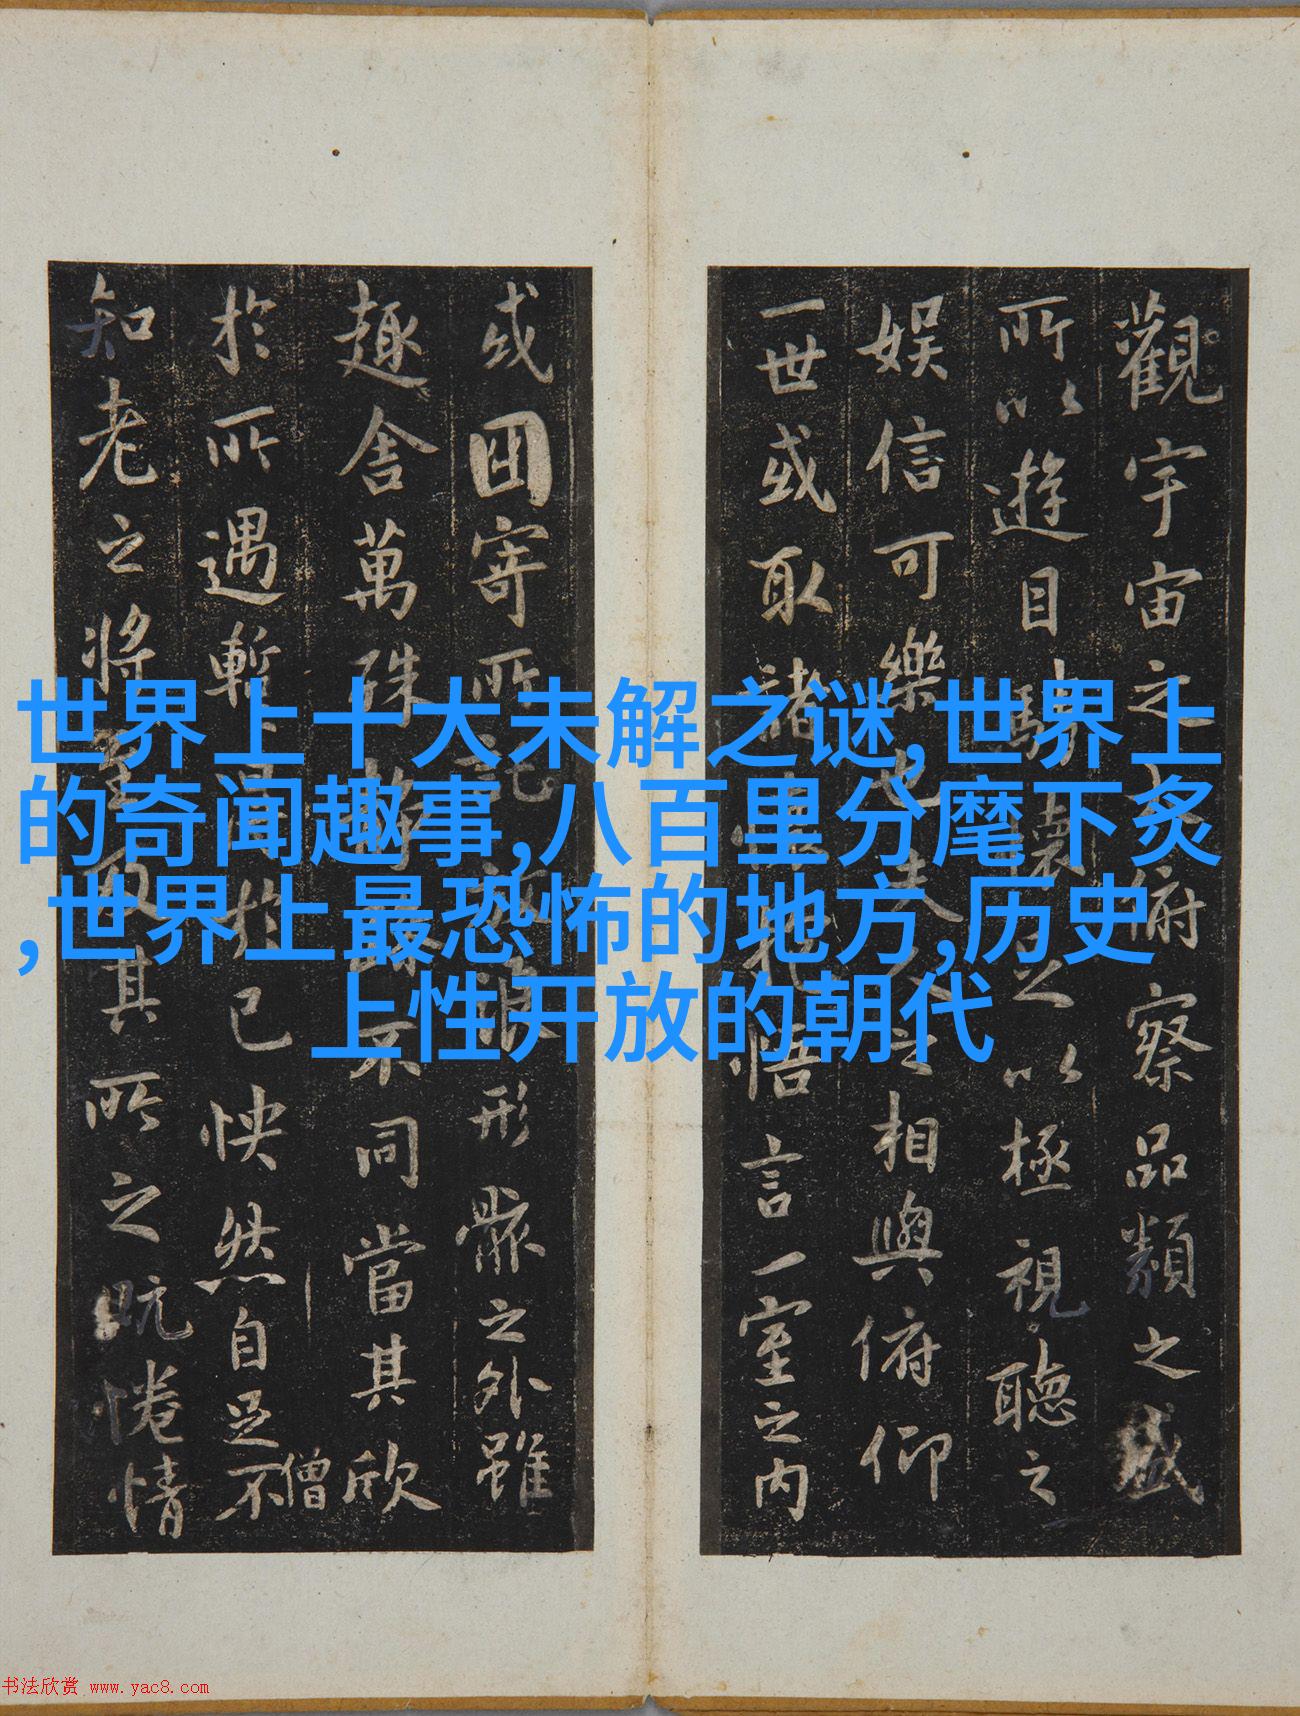 觀宇宙之大俯察品類之盛
所以遊目騁懷足以極視聽之
娱信可樂也夫人之相與俯仰
一世或取諸懷抱悟言一室之内
或因寄所託放浪形骸之外雖
趣舍萬殊静躁不同當其欣
於所遇暫得於己快然自足不
僧
知老之將至及其所之既惓情
世界上十大未解之谜,世界上
的奇闻趣事,八百里分麾下炙
,世界上最恐怖的地方,历史
上性开放的朝代
书法欣赏 www.yac8.com